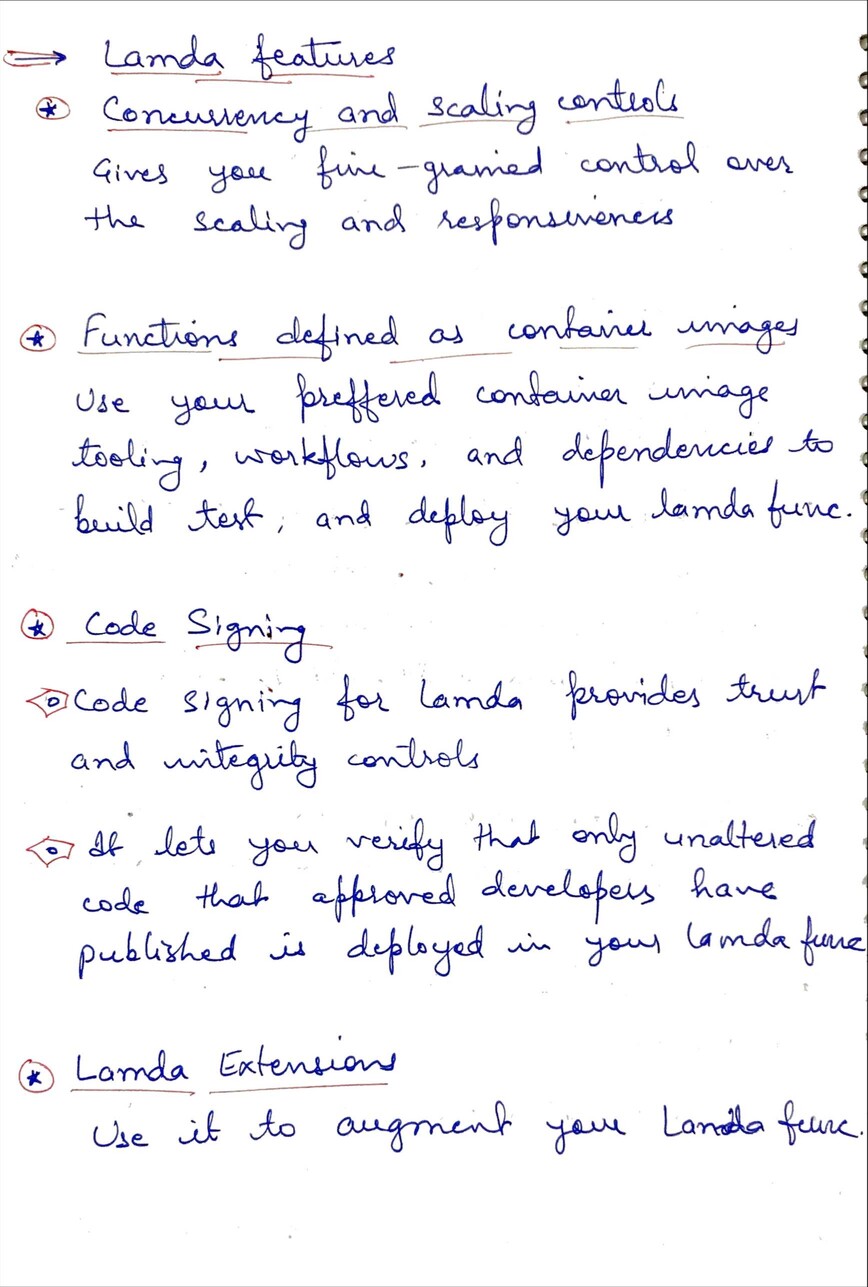 Lamda features
Concurrency and scaling controls
Gives you fine-grained control over
the scaling and responsiveness
Functions defined as container images
Use your preffered container image
tooling, workflows, and dependencies to
build test, and deploy your lamda func.
Code Signing
Code signing for lamda provides trust
and integrity controls
It lets you verify that only unaltered
code that approved developers have
published is deployed in your lamda func
Lamda Extensions
Use it to augment your Lamda func.